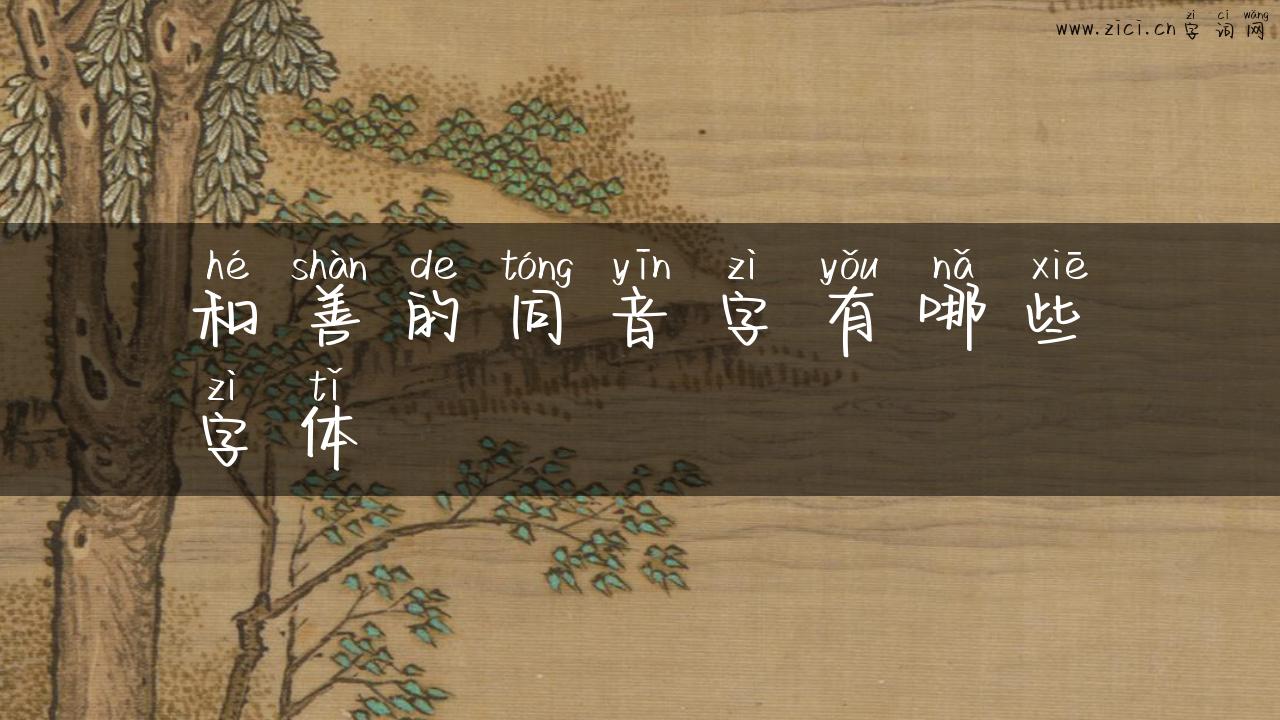 zì cí wǎng
www.zici.cn 字词网
hé shàn de tóng yīn zì yǒu nǎ xiē
和善的同音字有哪些
zì tǐ
字体